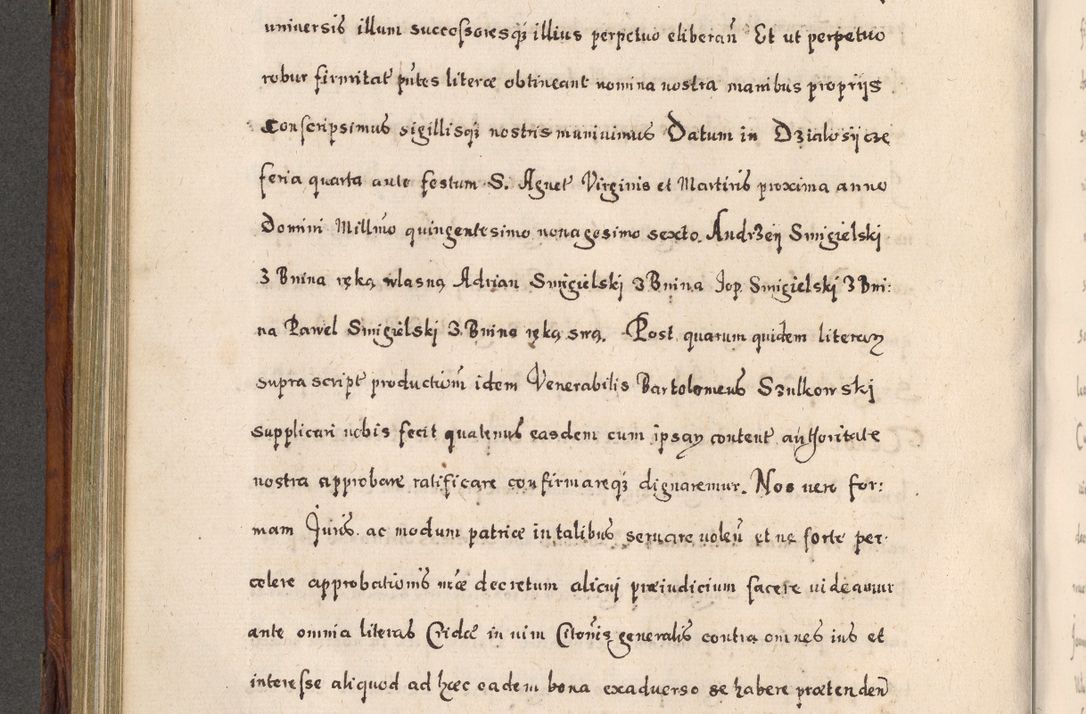 universis illum successoresq3 illius perpetuo eliberan̄ Et ut perpetuo
robur firmitat pn̄tes literæ obtineant nomina nostra manibus proprijs
Conscripsimus sigillisq3 nostris munivimus Datum in Dzialosijczę
feria quarta ante festum S. Agnet Virginis et Martiris proxima anno
Domini Millmo quingentesimo nonagesimo sexto. Andrzeij Smigielski
z Bnina ręką własną Adrian Smigielski z Bnina Jop Smigielski z Bni:
na Pawel Smigielski z Bnina ręką swą. Post quarum quidem literaꝝ
suprascript productiom̄ idem Venerabilis Bartolomeus Szulkowski
supplicari nobis fecit quatenus easdem cum ipsaꝝ content authoritate
nostra approbare ratificare confirmareq3 dignaremur. Nos vero for:
mam Juris ac modum patriæ in talibus servare volen̄ et ne forte per-
celere approbationis nr̄æ decretum alicui præiudicium facere videamur
ante omnia literas Cridæ in vim Citon̄is generalis contra omnes ius et
interesse aliquod ad hæc eadem bona exadverso se habere prætenden̄